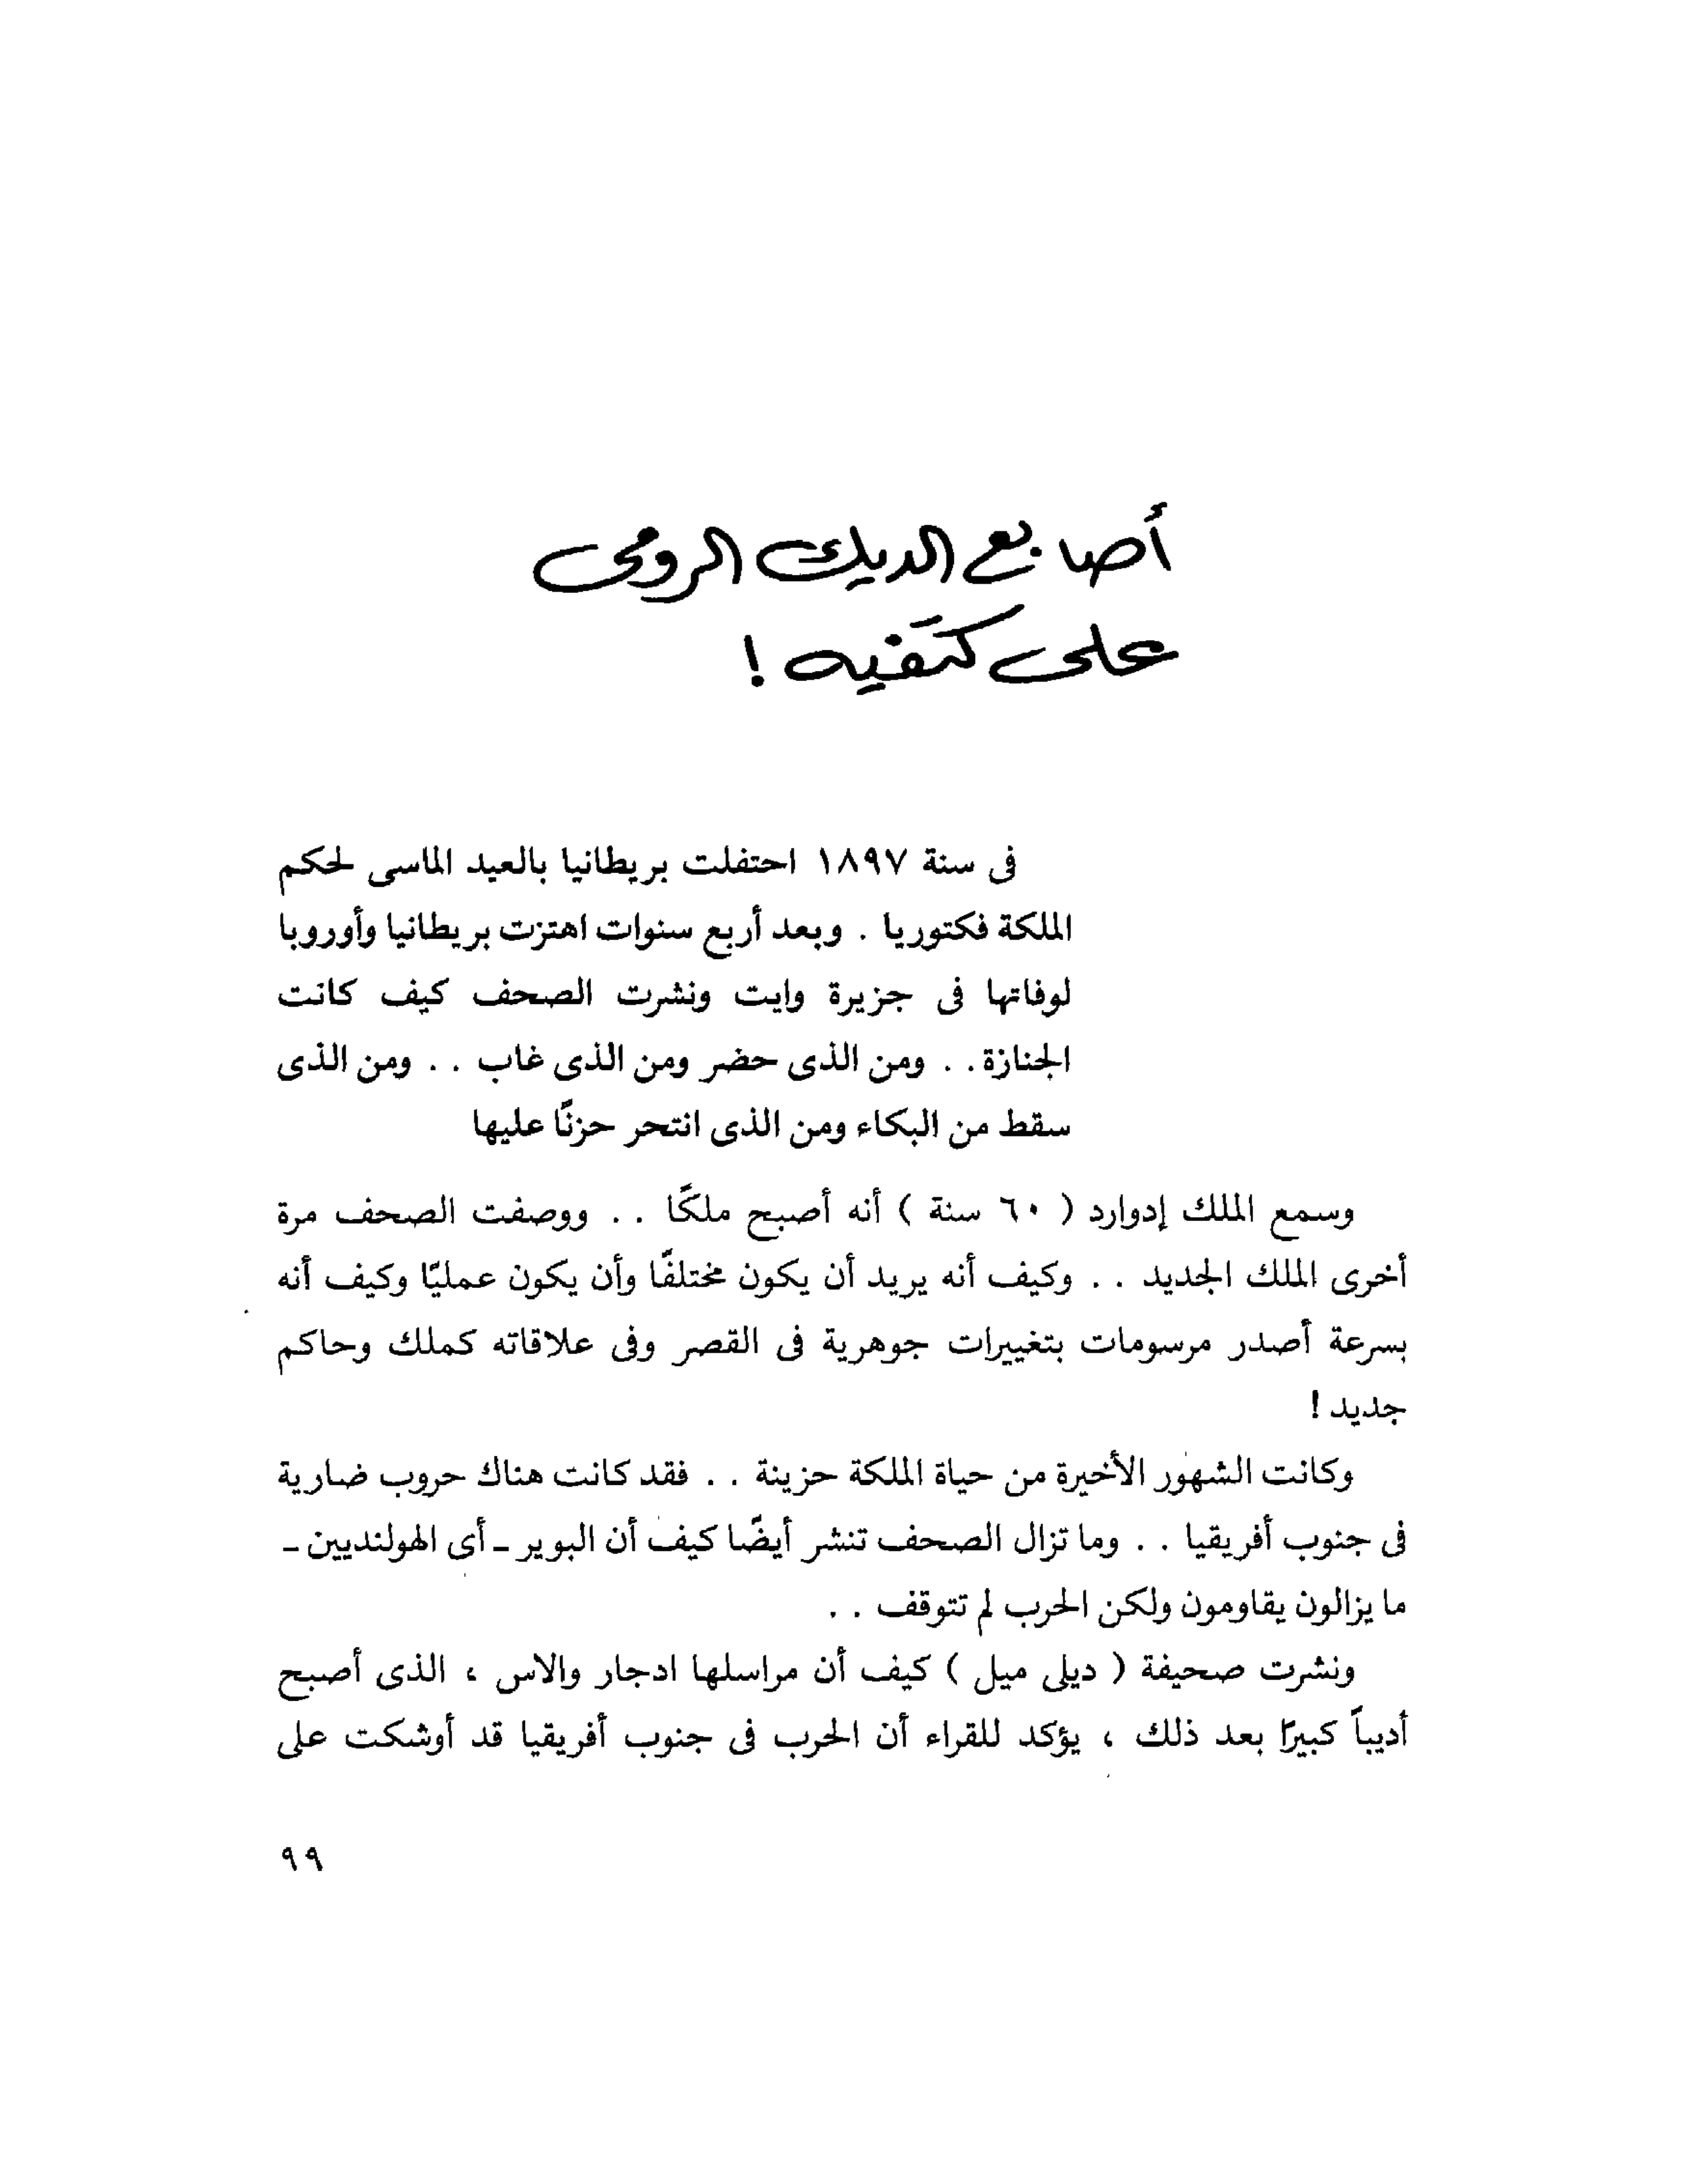 أصابع الديك الرومى
على كتفيه !
فى سنة ١٨٩٧ احتفلت بريطانيا بالعيد الماسى لحكم
الملكة فكتوريا . وبعد أربع سنوات اهتزت بريطانيا وأوروبا
لوفاتها فى جزيرة وايت ونشرت الصحف كيف كانت
الجنازة . . ومن الذى حضر ومن الذى غاب . . ومن الذى
سقط من البكاء ومن الذى انتحر حزنًا عليها
وسمع الملك إدوارد ( ٦٠ سنة ) أنه أصبح ملكًا . . ووصفت الصحف مرة
أخرى الملك الجديد . . وكيف أنه يريد أن يكون مختلفًا وأن يكون عمليًا وكيف أنه
بسرعة أصدر مرسومات بتغييرات جوهرية فى القصر وفى علاقاته كملك وحاكم
جديد !
وكانت الشهور الأخيرة من حياة الملكة حزينة . . فقد كانت هناك حروب ضارية
فى جنوب أفريقيا . . وما تزال الصحف تنشر أيضًا كيف أن البوير ـ أى الهولنديين ـ
ما يزالون يقاومون ولكن الحرب لم تتوقف . .
ونشرت صحيفة ( ديلى ميل ) كيف أن مراسلها ادجار والاس ، الذى أصبح
أديباً كبيرًا بعد ذلك ، يؤكد للقراء أن الحرب فى جنوب أفريقيا قد أوشكت على
٩٩